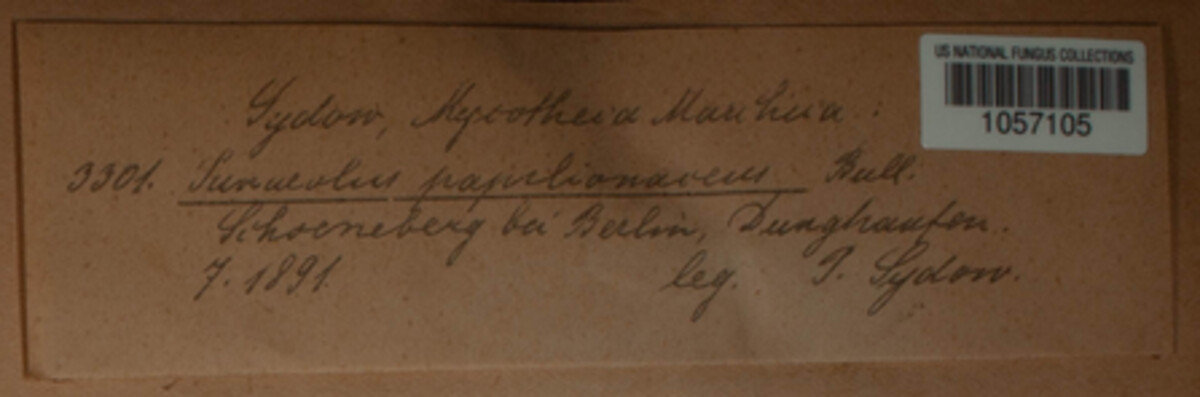 US NATIONAL FUNGUS COLLECTIONS
1057105
Sydow, Mycotheca Marchica.
3301. Panaeolus papilionaceus Bull.
Schoeneberg bei Berlin, Dunghaufen.
7. 1891. leg. P. Sydow.